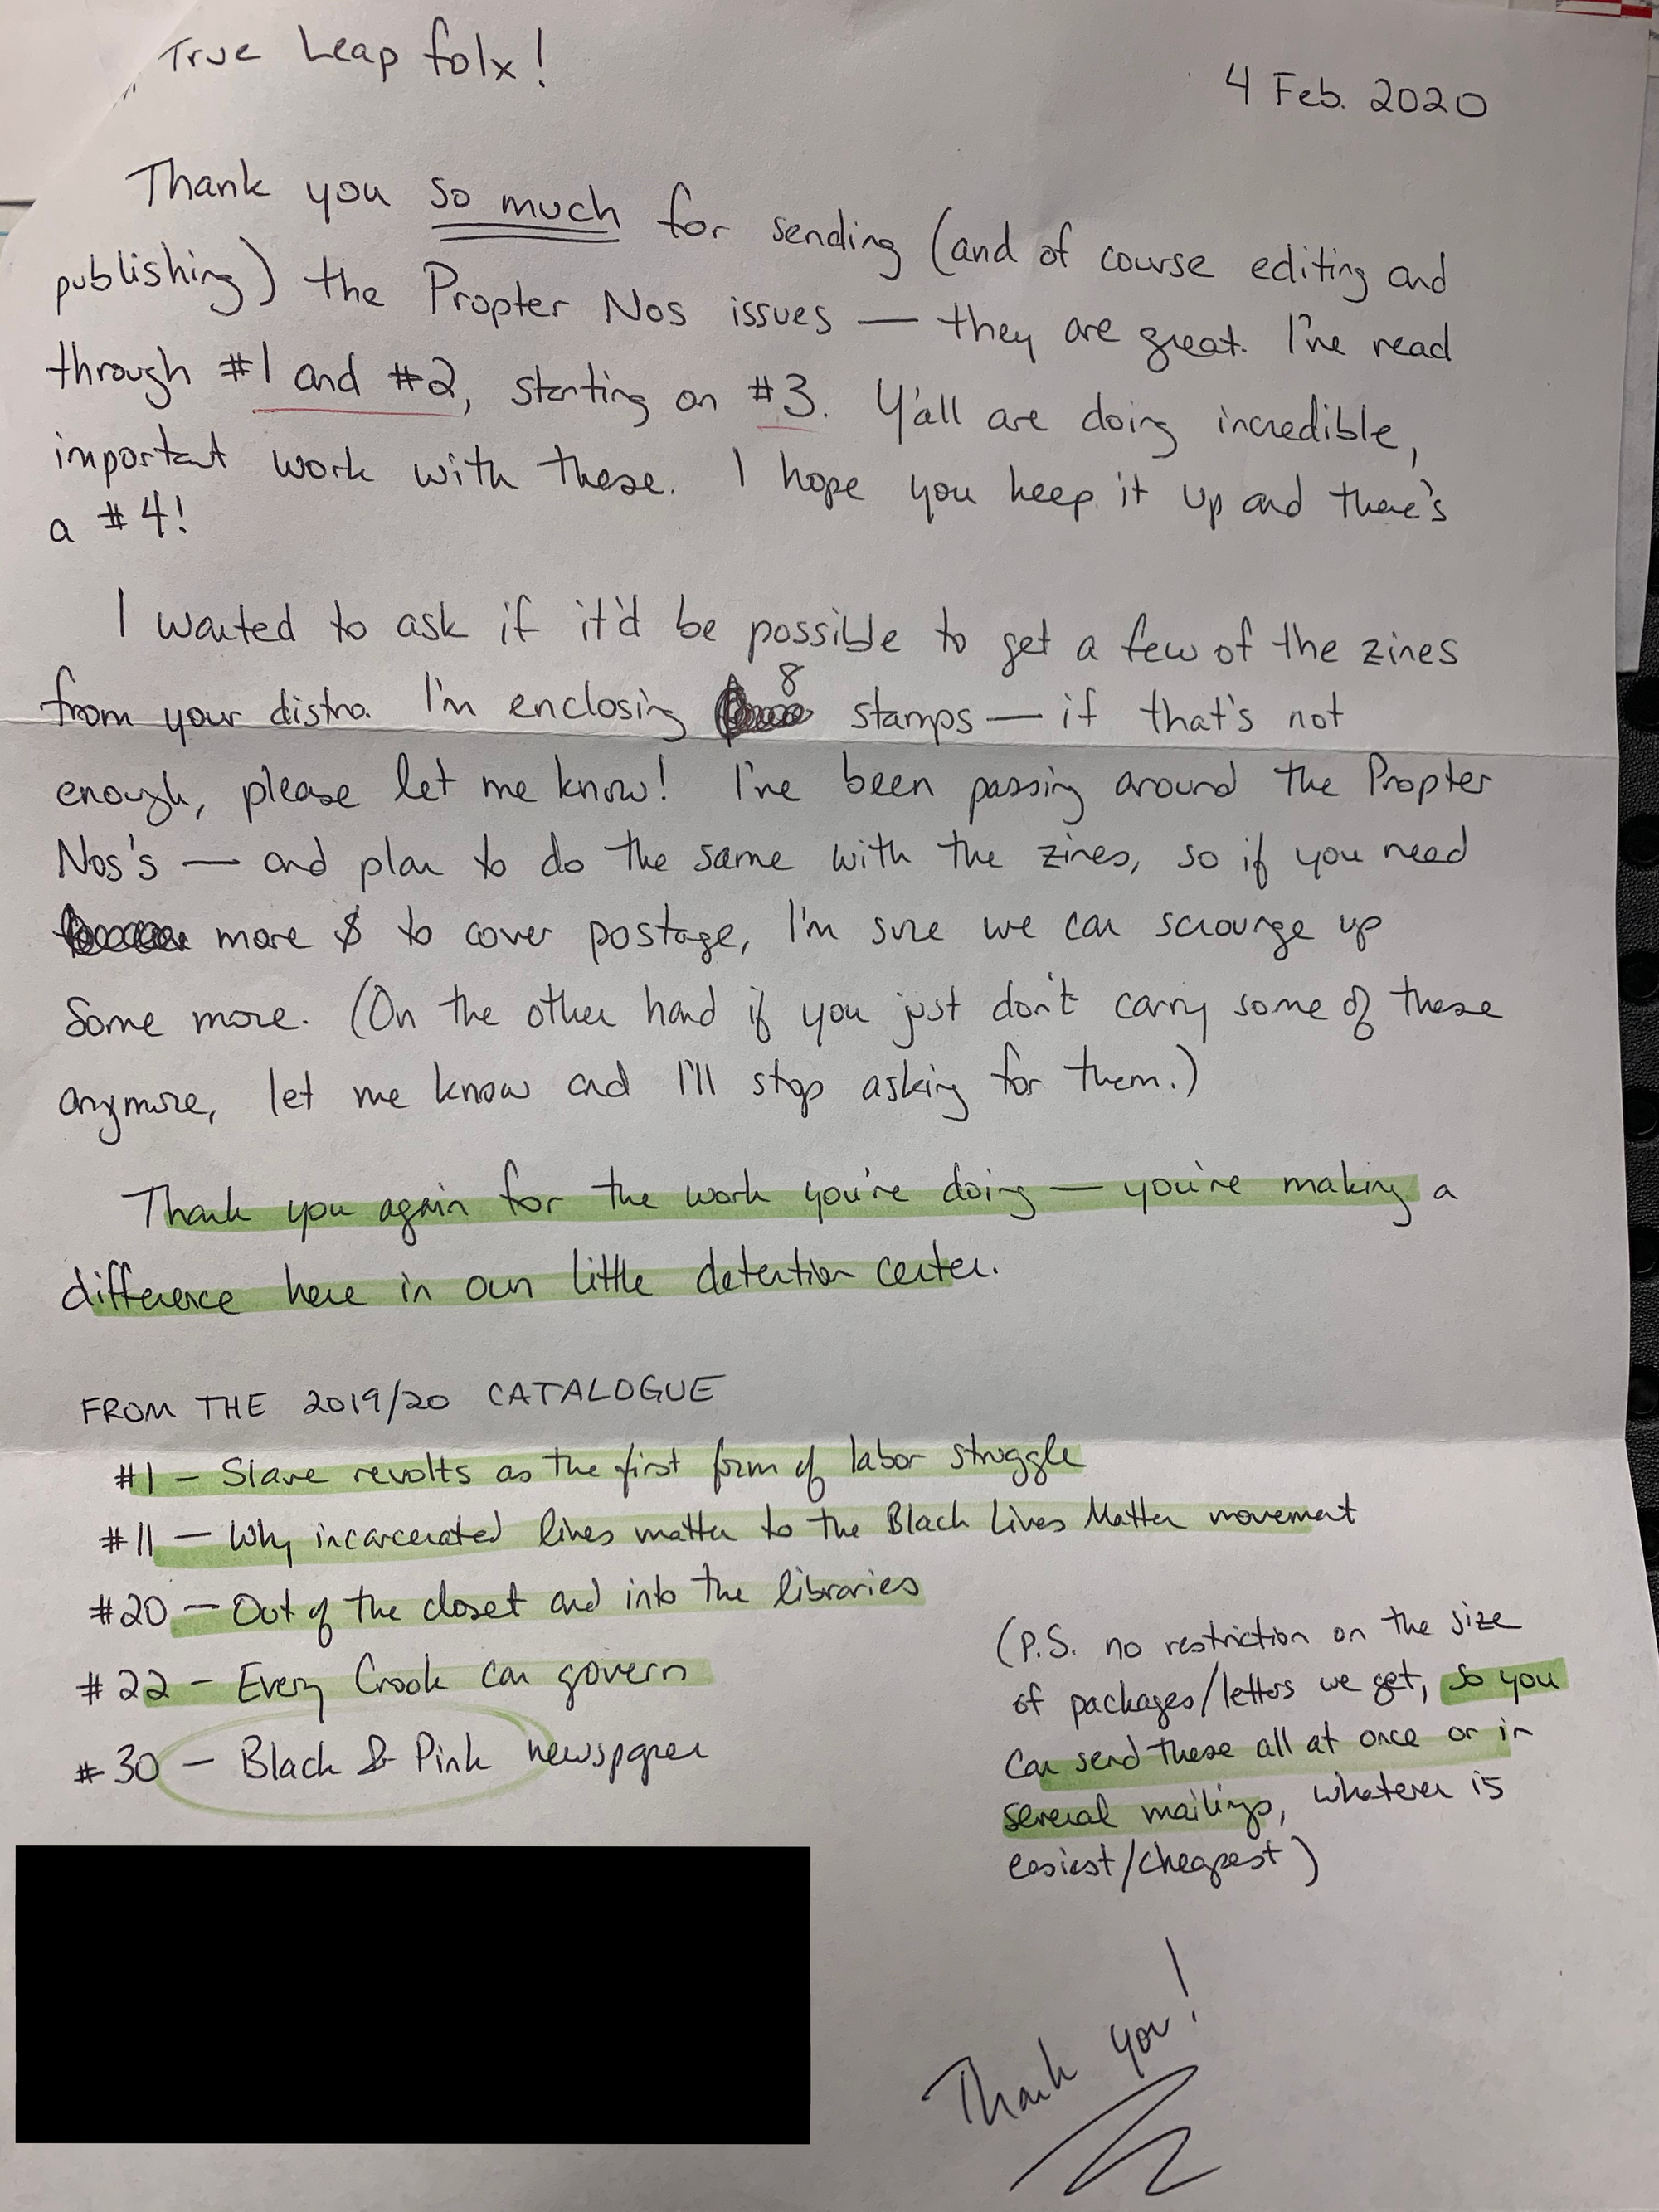 True Leap folx!
4 Feb. 2020
Thank you so much for sending (and of course editing and
publishing) the Propter Nos issues — they are great. I've read
through #1 and #2, starting on #3. Y'all are doing incredible,
important work with these. I hope you keep it up and there's
a #4!
I wanted to ask if it'd be possible to get a few of the zines
from your distro. I'm enclosing 8 stamps — if that's not
enough, please let me know! I've been passing around the Propter
Nos's — and plan to do the same with the zines, so if you need
more $ to cover postage, I'm sure we can scrounge up
some more. (On the other hand if you just don't carry some of these
anymore, let me know and I'll stop asking for them.)
Thank you again for the work you're doing — you're making a
difference here in our little detention center.
FROM THE 2019/20 CATALOGUE
#1 — Slave revolts as the first form of labor struggle
#11 — Why incarcerated lives matter to the Black Lives Matter movement
#20 — Out of the closet and into the libraries
#22 — Every Crook can govern
#30 — Black & Pink newspaper
(P.S. no restriction on the size
of packages/letters we get, so you
can send these all at once or in
several mailings, whatever is
easiest/cheapest)
Thank you!